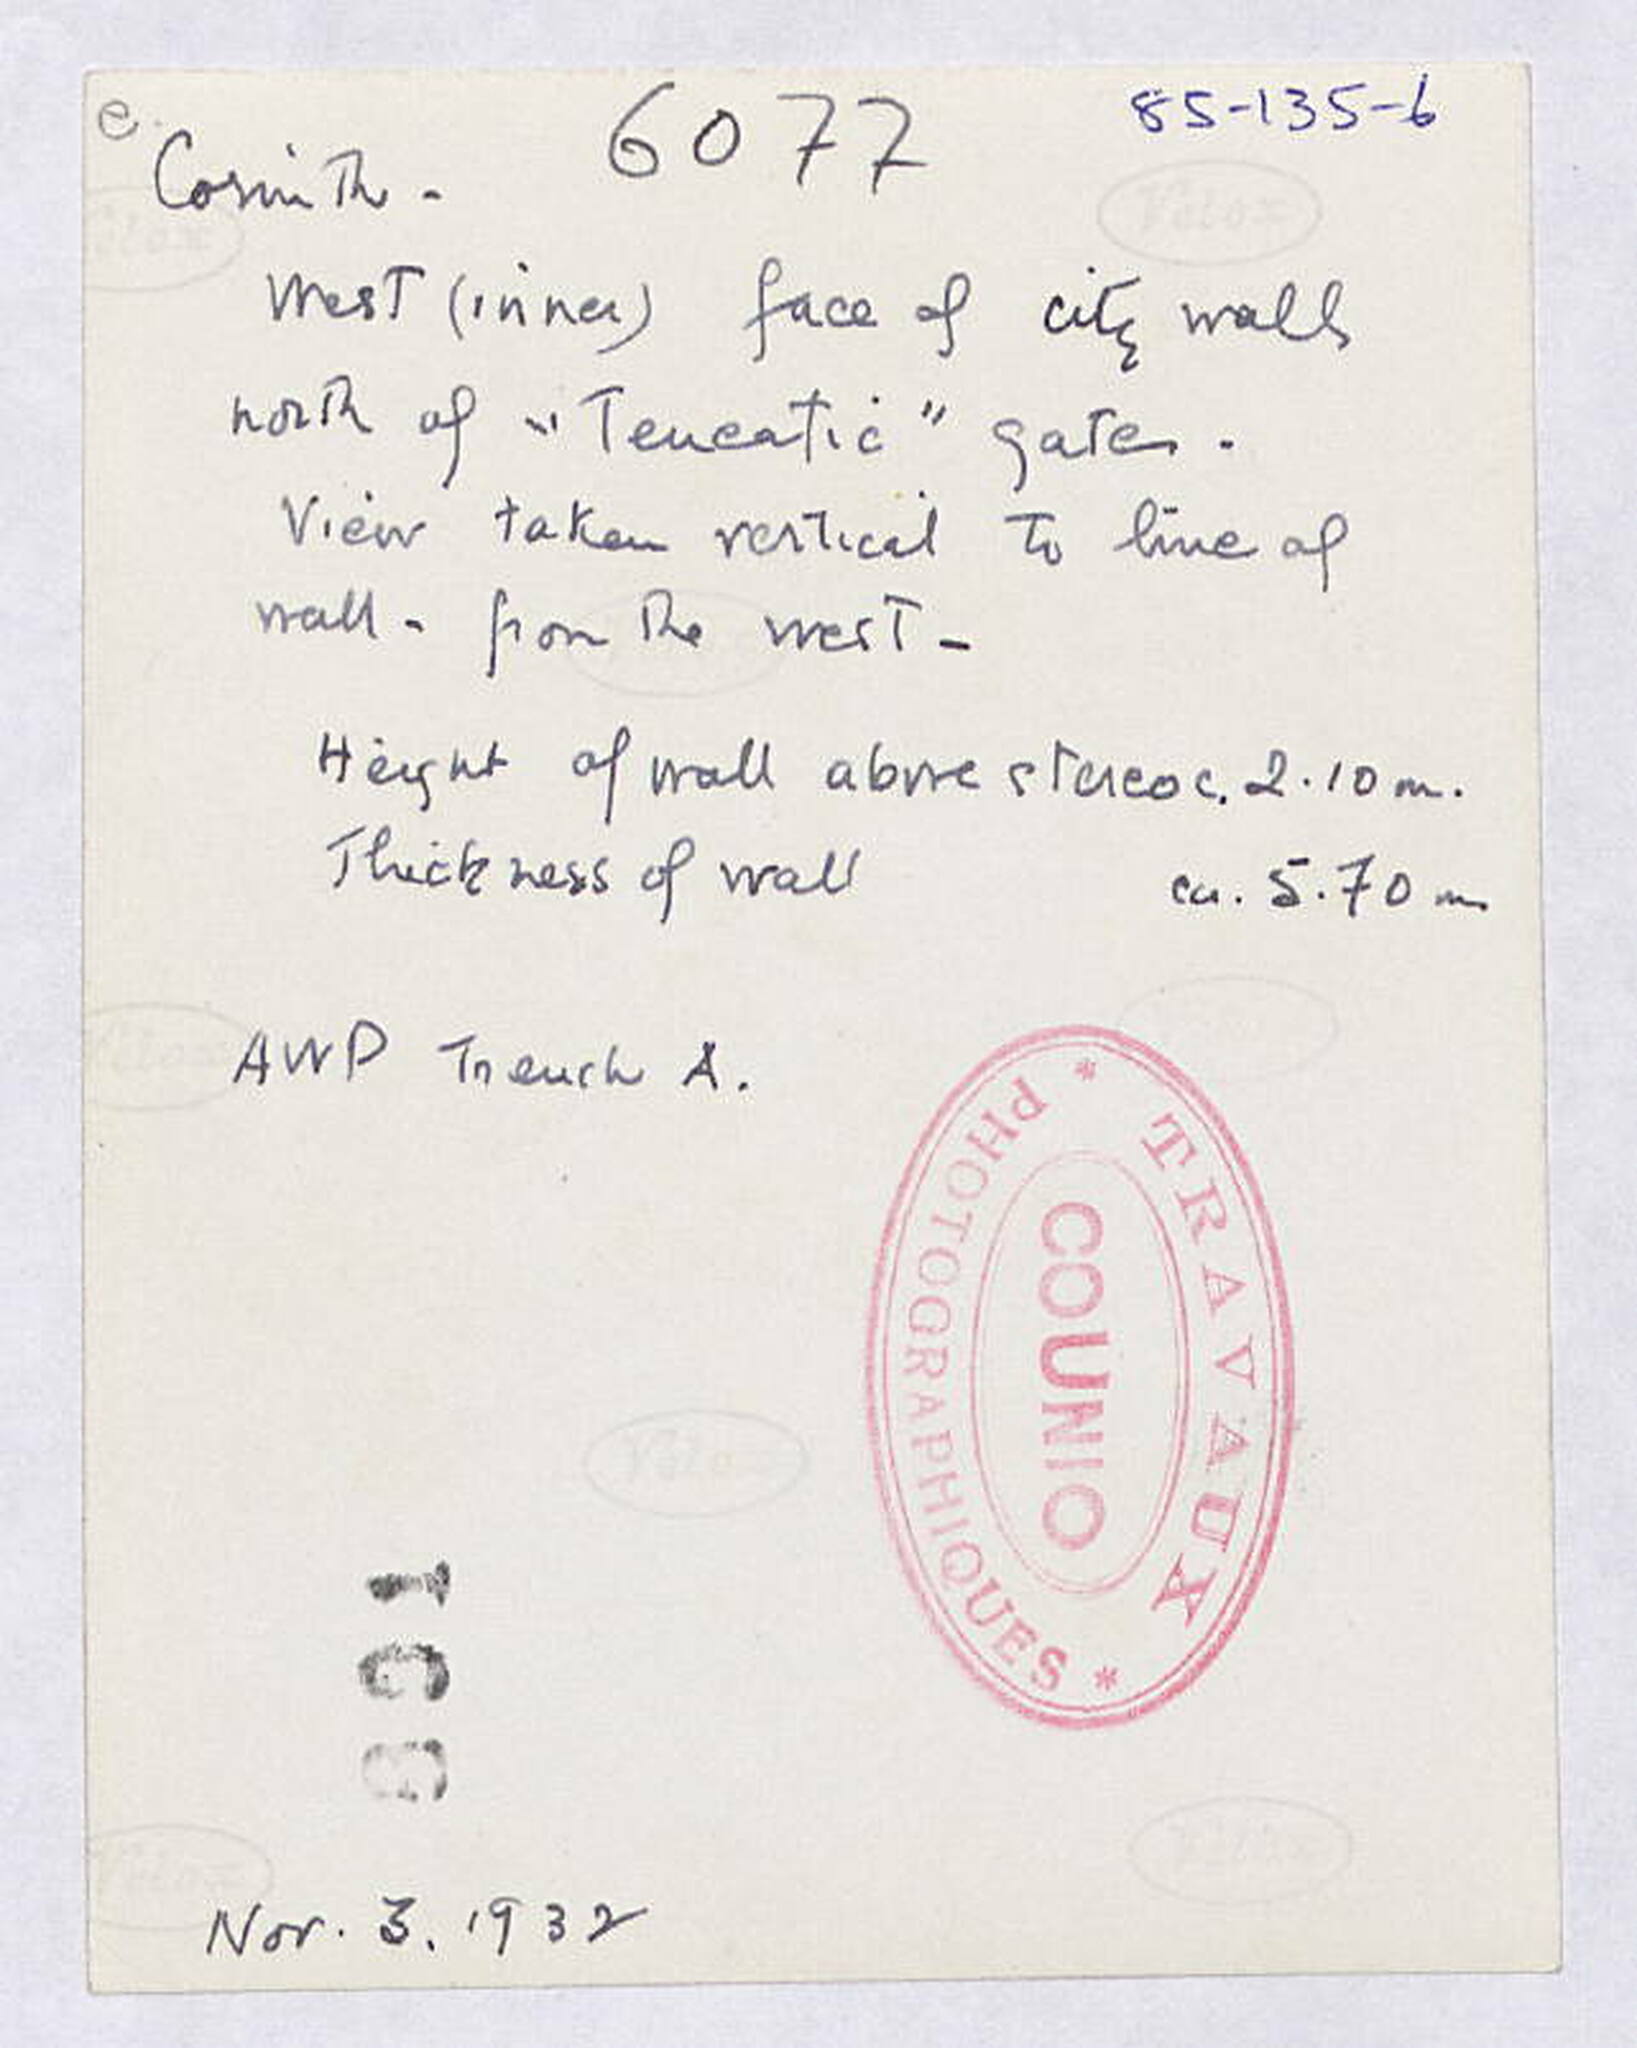 e.
6077
85-135-6
Corinth -
West (inner) face of city walls
north of "Teneatic" gates.
View taken vertical to line of
wall - from the west -
Height of wall above stereo c. 2.10 m.
Thickness of wall ca. 5.70 m
AWP Trench A.
* TRAVAUX *
PHOTOGRAPHIQUES
COUNIO
Velox
Velox
Velox
Velox
Velox
Velox
Nov. 3. 1932